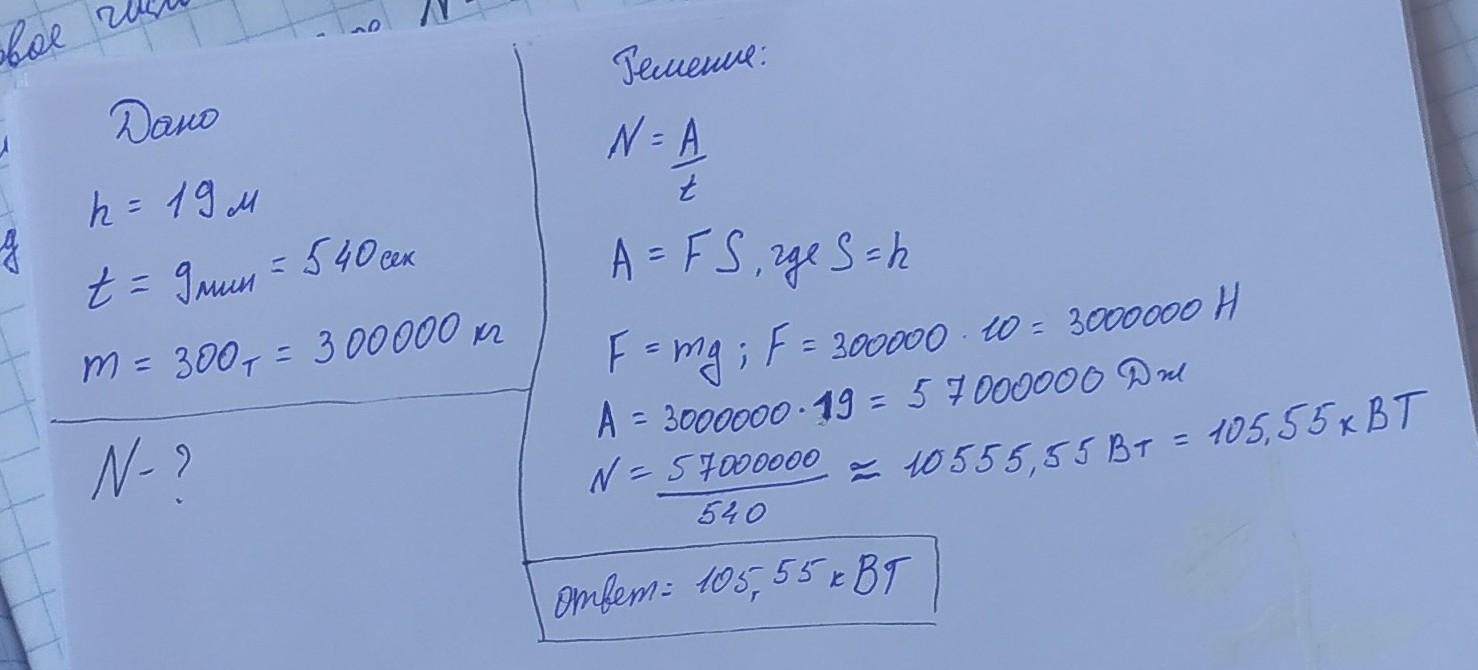 вое число
N
Дано
h = 19 м
t = 9 мин = 540 сек
m = 300 т = 300000 кг
N - ?
Решение:
N = A/t
A = F S, где S = h
F = mg ; F = 300000 · 10 = 3000000 Н
A = 3000000 · 19 = 57000000 Дж
N = 57000000/540 ≈ 10555,55 Вт = 105,55 кВТ
ответ = 105,55 кВТ